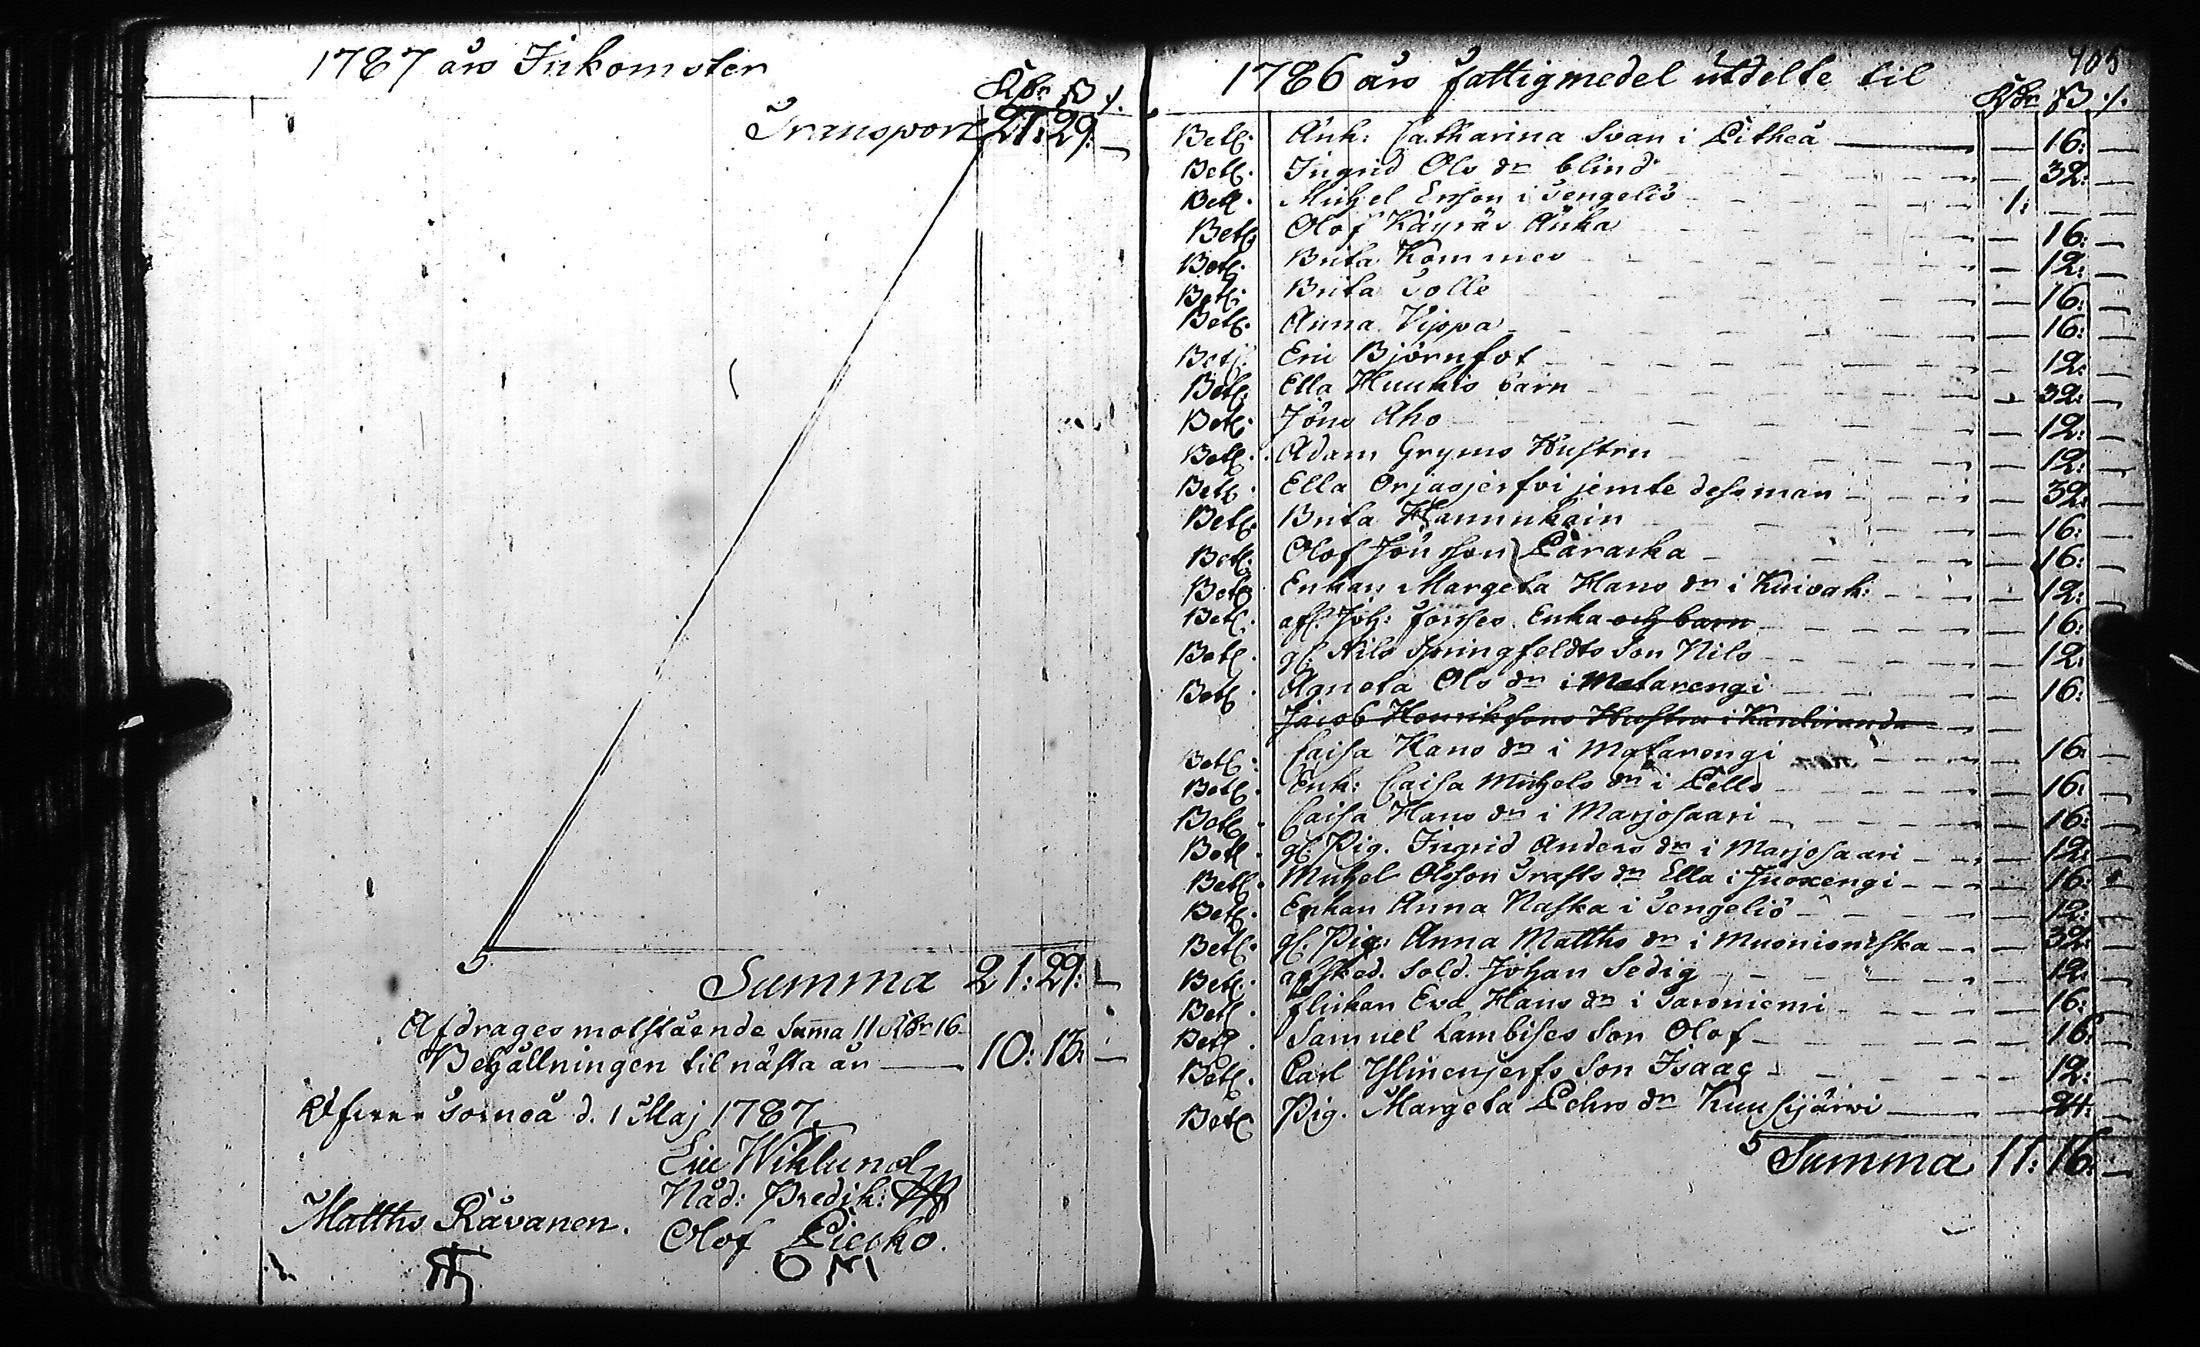 1787 års Inkomster
Rdr ß /.
Transport 21: 29: —
Summa 21: 29: —
Afdrages motstående Summa 11 Rdr 16
Behållningen til nästa år — 10: 13: —
Torneå d. 1 Maj 1787.
Eric Wiklund
Nåd: Predik:
Matths Råvanen.
Olof Piesko.
1786 års fattigmedel utdelte til
405
Rdr ß /.
Betl. Änk: Catharina Svan i Pitheå — 16: —
Betl. Ingrid Ols dr blind — 32: —
Betl. Michel Ersson i Tengeliö 1: — —
Betl. Olof Käyräs Änka — 16: —
Betl. Brita Kommes — 12: —
Betl. Brita Tolle — 16: —
Betl. Anna Vippa — 16: —
Betl. Eric Björnfot — 12: —
Betl. Ella Huukis barn — 32: —
Betl. Jöns Aho — 12: —
Betl. Adam Gryms Hustru — 12: —
Betl. Ella Orjasjerfvi jemte dess man — 32: —
Betl. Brita Hannukain — 16: —
Betl. Olof Jönsson — 16: —
Betl. Enkan Margeta Hans dr i Kuivak: — 12: —
Betl. afl. Joh: Enka och barn — 16: —
Betl. gl. Nils Springfeldts son Nils — 12: —
Betl. Agneta Ols dr i Matarengi — 16: —
Jacob Henriksons Hustru i
Betl. Caisa Hans dr i Matarengi — 16: —
Betl. Enk: Caisa Michels dr i Pello — 16: —
Betl. Caisa Hans dr i Marjosaari — 16: —
Betl. gl. Pig. Ingrid Anders dr i Marjosaari — 12: —
Betl. Michel Olsson Trasts dr Ella i Juoxengi — 16: —
Betl. Enkan Anna Naska i Tengeliö — 12: —
Betl. gl. Pig: Anna Matths dr i Muonioniska — 32: —
Betl. afsked. Sold. Johan Sedig — 12: —
Betl. flickan Eva Hans dr i Saroniemi — 16: —
Betl. Samuel Lambises Son Olof — 16: —
Betl. Carl Ylinenjerfs Son Isaac — 12: —
Betl. Pig. Margeta Pehrs dr Kuusijärvi — 24: —
Summa 11: 16: —